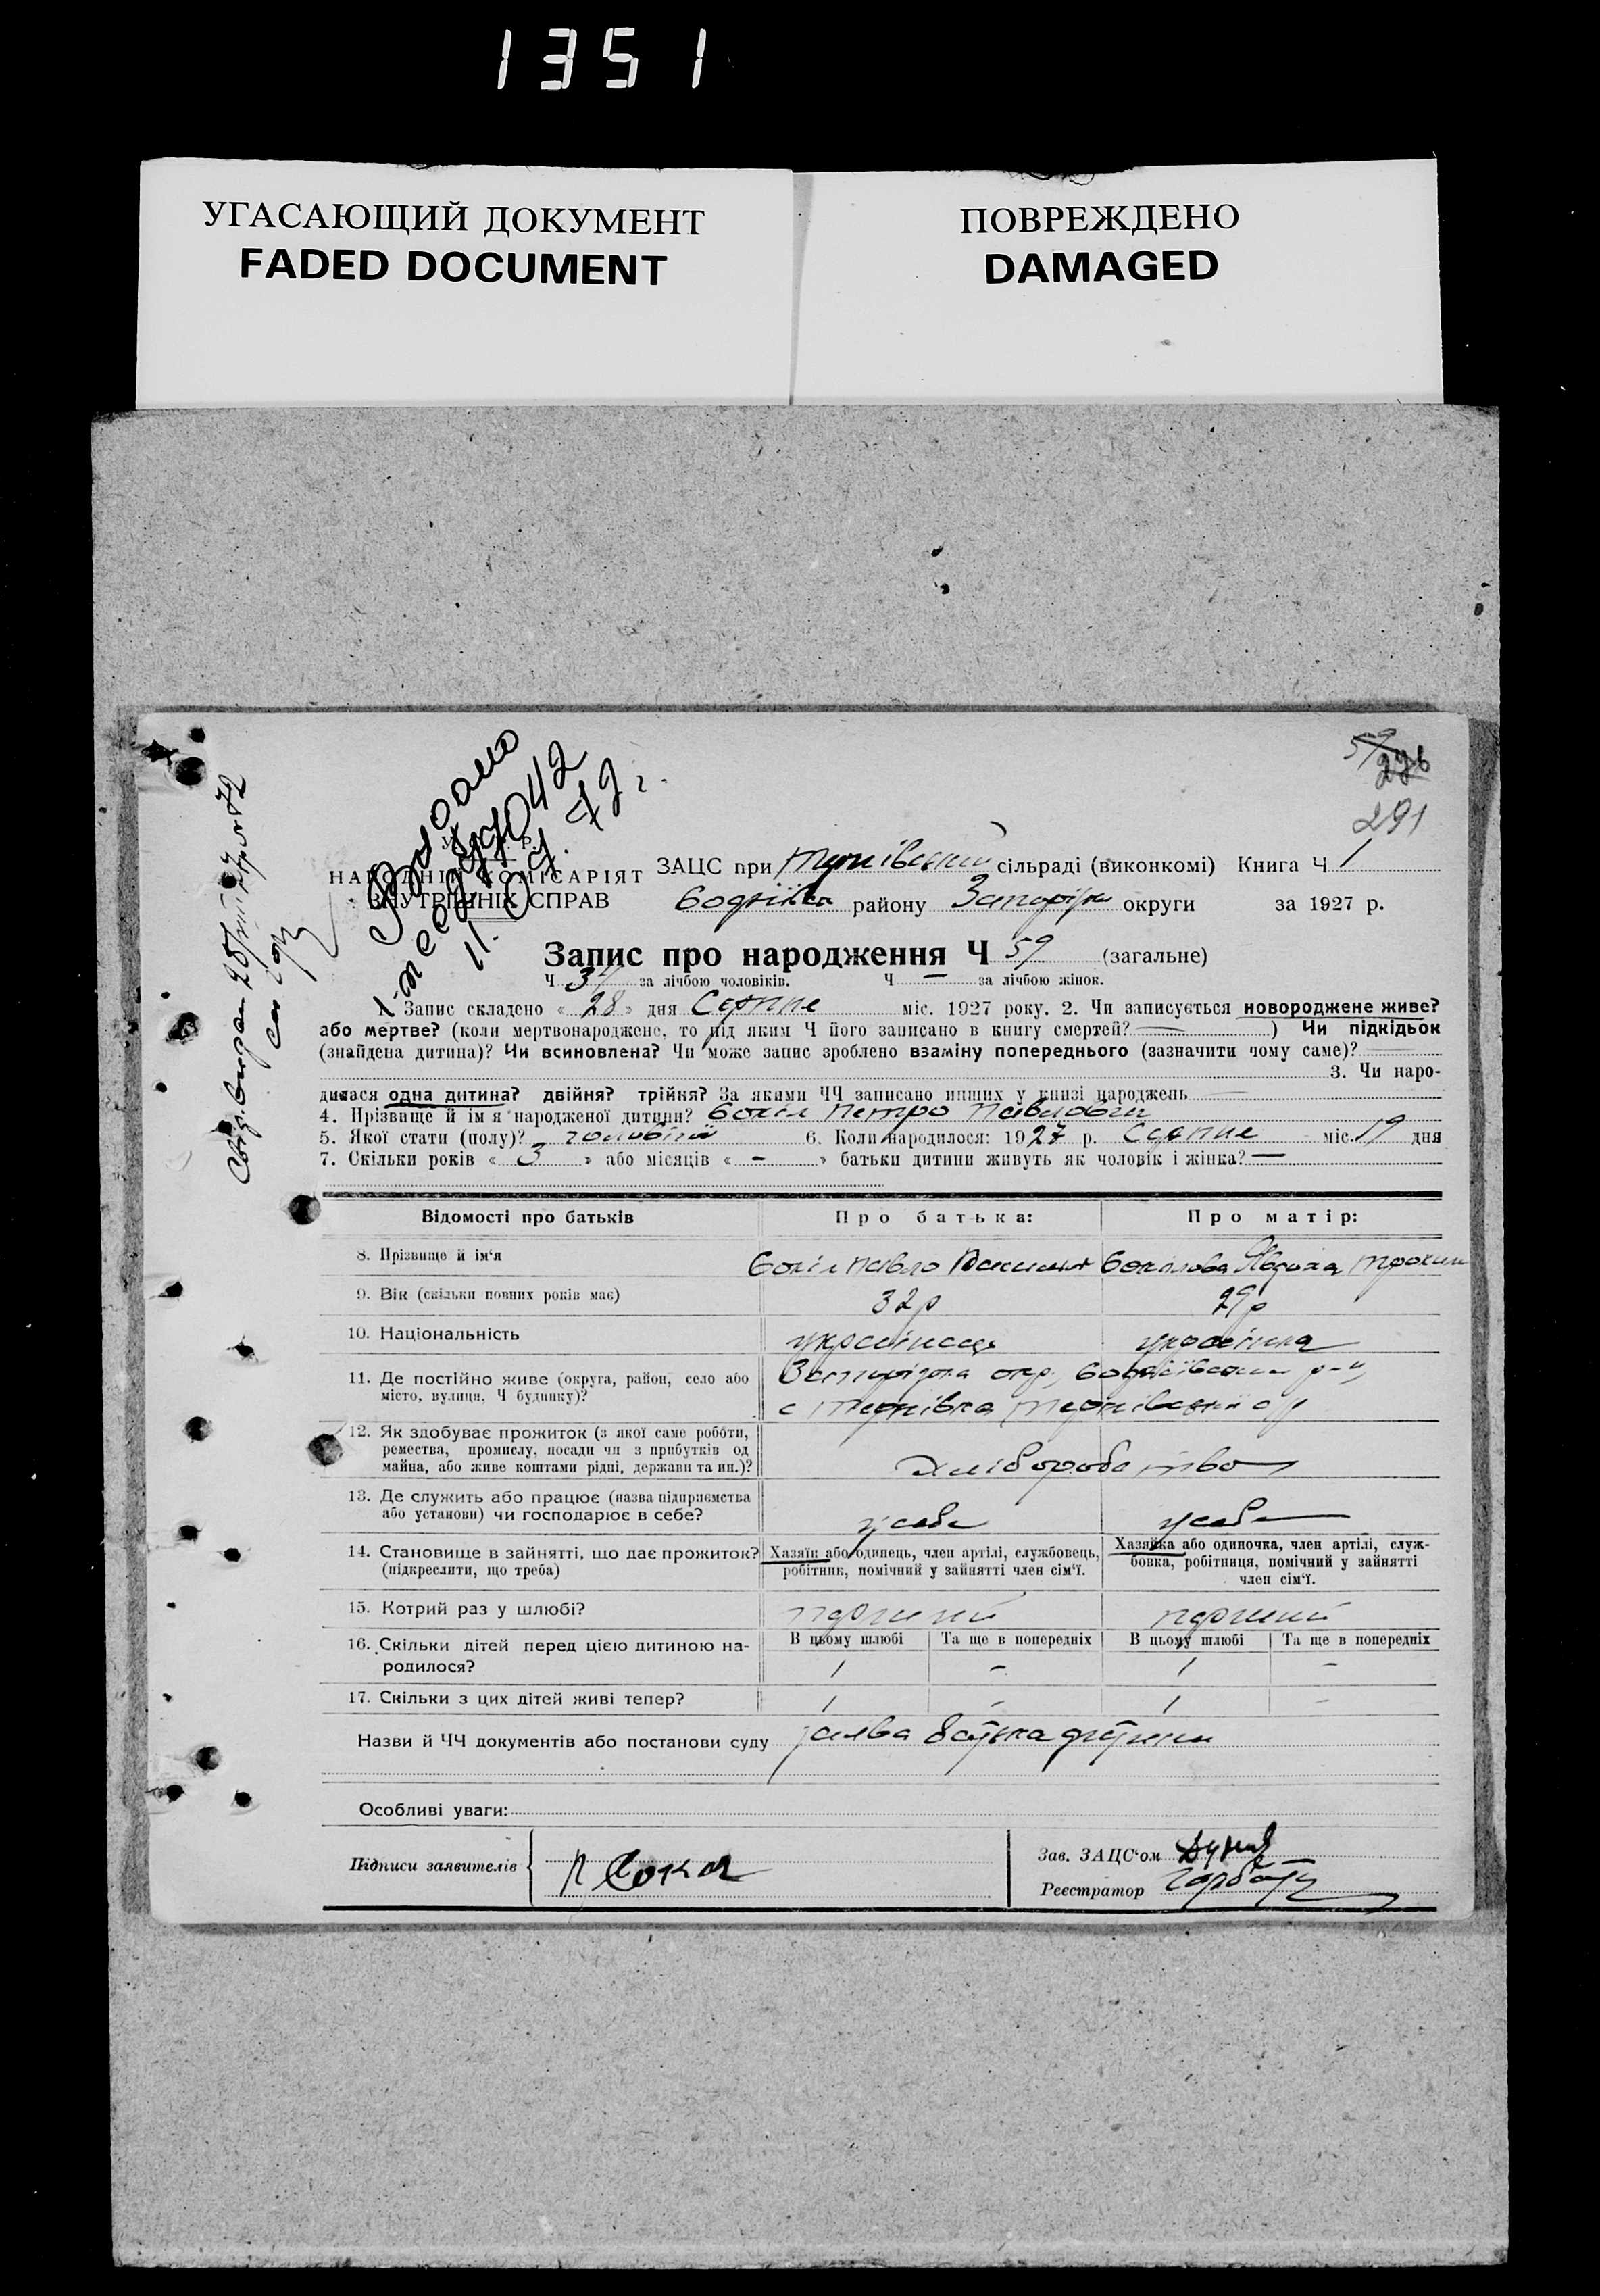 1351
УГАСАЮЩИЙ ДОКУМЕНТ
FADED DOCUMENT
ПОВРЕЖДЕНО
DAMAGED
59
226
291
НАРОДНІЙ КОМІСАРІЯТ
ВНУТРІШНІХ СПРАВ
ЗАЦС при сільраді (виконкомі) Книга Ч 1
району округи за 1927 р.
Запис про народження Ч 59 (загальне)
Ч за лічбою чоловіків. Ч — за лічбою жінок.
1. Запис складено «28» дня Серпня міс. 1927 року. 2. Чи записується новороджене живе?
або мертве? (коли мертвонароджене, то під яким Ч його записано в книгу смертей? — ) Чи підкідьок
(знайдена дитина)? Чи всиновлена? Чи може запис зроблено взаміну попереднього (зазначити чому саме)? —
3. Чи наро-
дилася одна дитина? двійня? трійня? За якими ЧЧ записано инших у книзі народжень —
4. Прізвище й ім'я народженої дитини? Сокіл Петро Павлович
5. Якої стати (полу)? 6. Коли народилося: 1927 р. Серпня міс. 19 дня
7. Скільки років «3» або місяців «-» батьки дитини живуть як чоловік і жінка? —
Відомості про батьків
Про батька:
Про матір:
8. Прізвище й ім'я
Сокіл Павло
Явдоха
9. Вік (скільки повних років має)
32 р
29 р
10. Національність
українець
українка
11. Де постійно живе (округа, район, село або
місто, вулиця, Ч будинку)?
Запорізька окр,
с Тернівка
12. Як здобуває прожиток (з якої саме роботи,
ремества, промислу, посади чи з прибутків од
майна, або живе коштами рідні, держави та ин.)?
Хліборобство
13. Де служить або працює (назва підприємства
або установи) чи господарює в себе?
у себе
у себе
14. Становище в зайнятті, що дає прожиток?
(підкреслити, що треба)
Хазяїн або одинець, член артілі, службовець,
робітник, помічний у зайнятті член сім'ї.
Хазяйка або одиночка, член артілі, служ-
бовка, робітниця, помічний у зайнятті
член сім'ї.
15. Котрий раз у шлюбі?
перший
перший
16. Скільки дітей перед цією дитиною на-
родилося?
В цьому шлюбі Та ще в попередніх В цьому шлюбі Та ще в попередніх
1 - 1 -
17. Скільки з цих дітей живі тепер?
1 - 1 -
Назви й ЧЧ документів або постанови суду заява батька дитини
Особливі уваги:
Підписи заявителів
П Сокіл
Зав. ЗАЦС'ом
Реєстратор